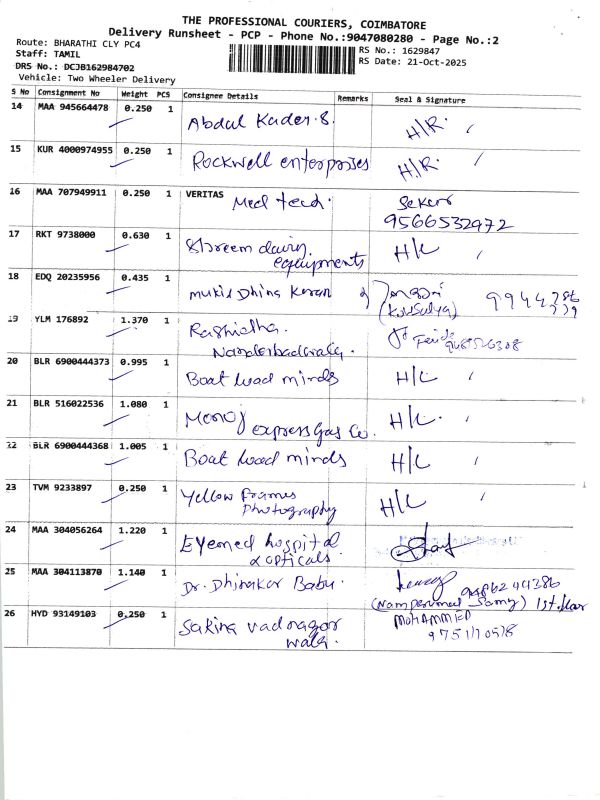 THE PROFESSIONAL COURIERS, COIMBATORE
Delivery Runsheet - PCP - Phone No.:9047080280 - Page No.:2
Route: BHARATHI CLY PC4
RS No.: 1629847
Staff: TAMIL
RS Date: 21-Oct-2025
DRS No.: DCJB162984702
Vehicle: Two Wheeler Delivery
S No Consignment No Weight PCS Consignee Details Remarks Seal & Signature
14 MAA 945664478 0.250 1 Abdul Kader.S. H/R.
15 KUR 4000974955 0.250 1 Rockwell enterprises H/R.
16 MAA 707949911 0.250 1 VERITAS Med tech. Sekar
9566532972
17 RKT 9738000 0.630 1 Shreem dairy H/L
equipments
18 EDQ 20235956 0.435 1 mukil Dhina Karan
(Kousalya)
19 YLM 176892 1.370 1 Rashidha.
20 BLR 6900444373 0.995 1 Boat head minds H/L
21 BLR 516022536 1.080 1 Manoj H/L.
express Gas Co.
22 BLR 6900444368 1.005 1 Boat head minds H/L
23 TVM 9233897 0.250 1 Yellow Frames H/L
Photography
24 MAA 304056264 1.220 1 Eyemed hospital
& opticals.
25 MAA 304113870 1.140 1 Dr. Dhinakar Babu.
26 HYD 93149103 0.250 1 Sakina vadnagar MOHAMMED
wala.